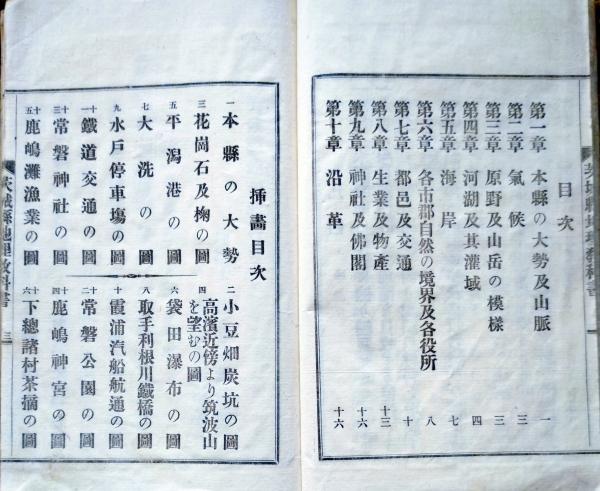 目次
第一章 本縣の大勢及山脈 一
第二章 氣候 三
第三章 原野及山岳の模樣 三
第四章 河湖及其灌域 四
第五章 海岸 七
第六章 各市郡自然の境界及各役所 八
第七章 都邑及交通 十
第八章 生業及物產 十三
第九章 神社及佛閣 十六
第十章 沿革 十六
挿畵目次
一 本縣の大勢
二 小豆畑炭坑の圖
三 花崗石及椈の圖
四 高濱近傍より筑波山を望むの圖
五 平潟港の圖
六 袋田瀑布の圖
七 大洗の圖
八 取手利根川鐵橋の圖
九 水戶停車塲の圖
十 霞浦汽船航通の圖
十一 鐵道交通の圖
十二 常磐公園の圖
十三 常磐神社の圖
十四 鹿嶋神宮の圖
十五 鹿嶋灘漁業の圖
十六 下總諸村茶摘の圖
茨城縣地理敎科書
三